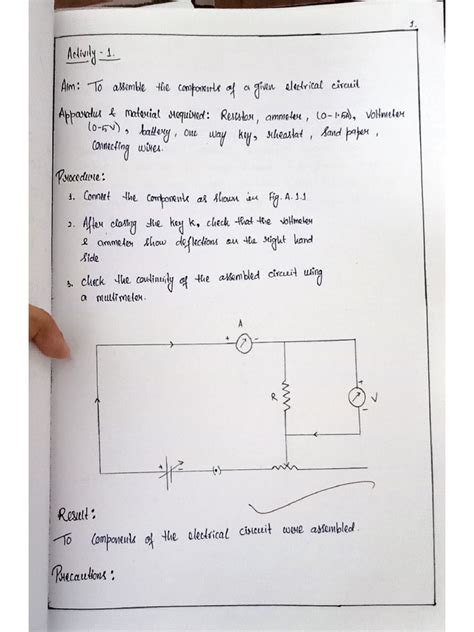 1.
Activity - 1.
Aim: To assemble the components of a given electrical circuit
Apparatus & material required: Resistor, ammeter, (0-1.5A), Voltmeter
(0-5V), battery, one way key, rheostat, Sand paper,
Connecting wires.
Procedure:
1. Connect the components as shown in Fig. A.1.1
2. After closing the key K, check that the voltmeter
& ammeter show deflections on the right hand
side
3. check the continuity of the assembled circuit using
a multimeter.
A
+ -
R
+
V
-
+ -
(•)
Result:
To Components of the electrical circuit were assembled.
Precautions: